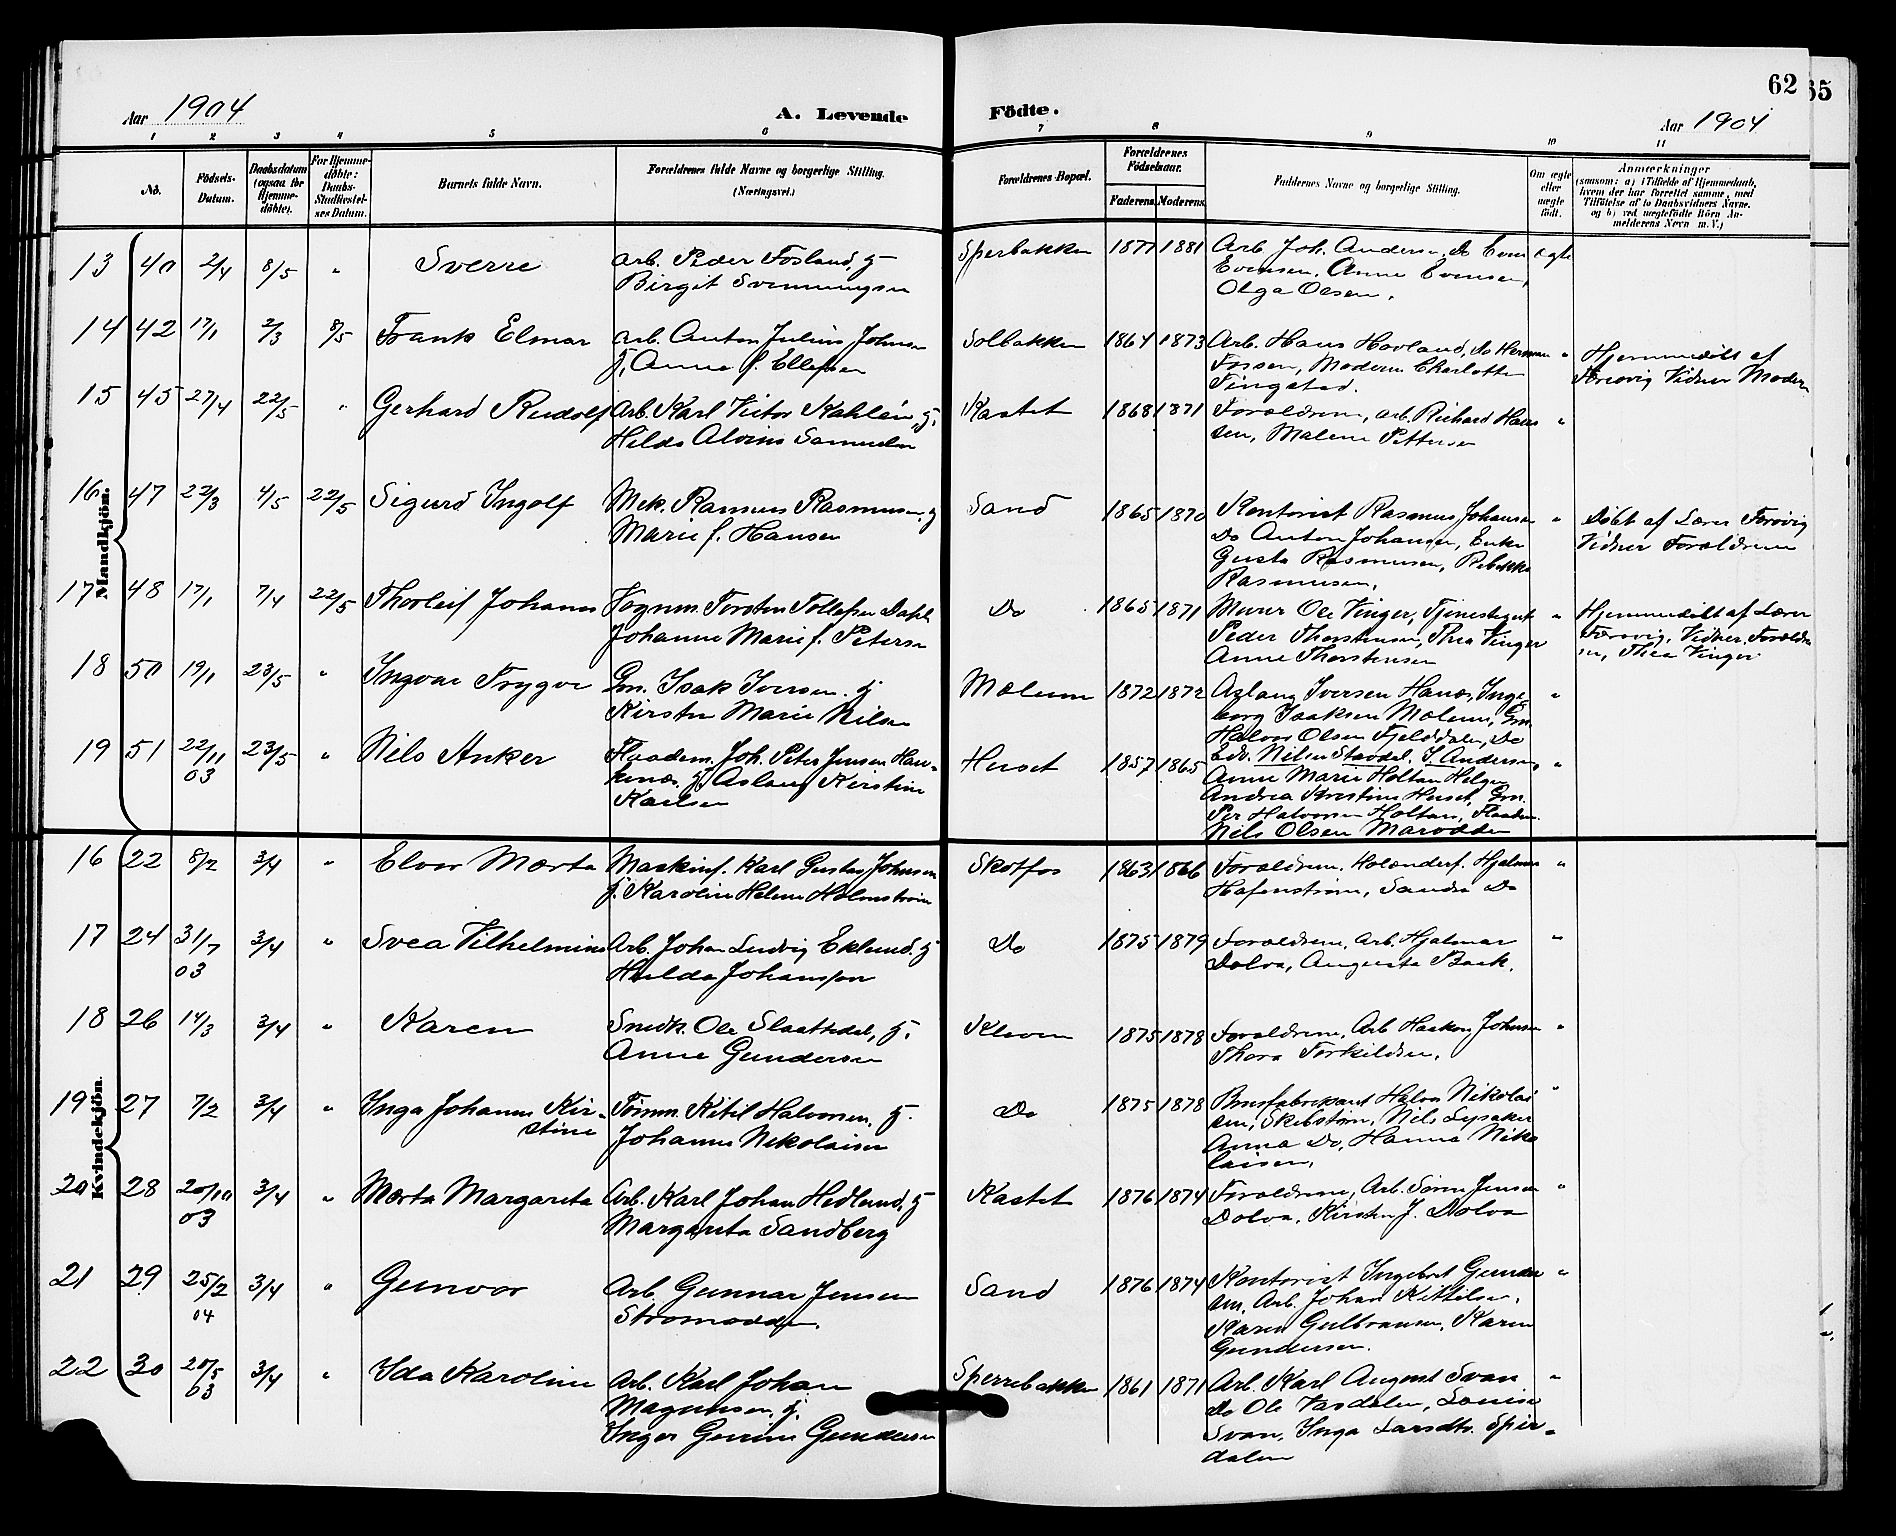 62
65
Aar 1904
A. Levende Födte.
Aar 1904
1 2 3 4 5 6 7 8 9 10 11
No.
Födsels-Datum.
Daabsdatum (ogsaa for Hjemme-döbte).
For Hjemme-döbte: Daabs-Stadfæstel-ses Datum.
Barnets fulde Navn.
Forældrenes fulde Navne og borgerlige Stilling. (Næringsvei.)
Forældrenes Bopæl.
Forældrenes Födselsaar.
Faderens. Moderens.
Faddernes Navne og borgerlige Stilling.
Om ægte eller uægte födt.
Anmærkninger
(saasom: a) i Tilfælde af Hjemmedaab,
hvem der har forrettet samme, med
Tilföielse af to Daabsvidners Navne.
og b) ved uægtefödte Börn An-
melderens Navn m. V.)
Mandkjön.
13 40 2/4 8/5 " Sverre
Arb. Peder Fosland, gj
Birgit Svenningsen
Sperbakken 1877 1881
Arb. Joh. Anderse, Do Even
Evensen, Anne Evensen,
Olga Olsen.
ægte
14 42 17/1 2/3 8/5 Frank Elmar
Arb. Anton Julius Johnsen
gj, Anne f. Ellefsen
Solbakken 1864 1873
Arb. Hans Hovland, Do Herman
Fossen, Moderen Charlotte
Tingstad.
"
Hjemmedöbt af
Færøvig Vidner Modern
15 45 27/4 22/5 " Gerhard Rudolf
Arb. Karl Victor Kahlén, gj.
Hilda Alvina Samuelsen
Kastet 1868 1871
Forældrene, Arb. Richard Han
sen, Malene Pettersen
"
16 47 22/3 4/5 22/5 Sigurd Ingolf
Mek. Rasmus Rasmusen, gj
Marie f. Hansen
Sand 1865 1870
Kontorist Rasmus Johansen
Do Anton Johansen, Enke
Gusta Rasmusen, Rebekka
Rasmusen,
"
Döbt af Lærer Færøvig
Vidner Forældrene
17 48 17/1 7/4 22/5 Thorleif Johannes
Vognm. Torsten Tollefsen Dahl
Johanne Marie f. Petersen
Do 1865 1871
Murer Ole Vinger, Tjenestegut
Peder Thorstensen, Thea Vinger
Anne Thorstensen
"
Hjemmedöbt af Lærer
Færøvig, Vidner, Forældre
ne, Thea Vinger
18 50 19/1 23/5 " Ingvar Trygve
Gm. Isak Iversen gj
Kirsten Marie Nilsen
Mælum 1872 1872
Aslaug Iversen Hanæs, Inge
borg Isaksen Mælum, Gm.
Halvor Olsen Fjelddalen, Do
Edv. Nilsen Stavdal. I. Andersen,
"
19 51 22/11 03 23/5 " Nils Anker
Flaadem. Joh. Peter Jensen Hau-
kenæs gj Aslaug Kirstine
Karlsen
Huset 1857 1865
Anne Marie Holtan Helgen
Andrea Kirstine Huset, Gm.
Per Halvorsen Holtan, Flaadem.
Nils Olsen Marodden
"
Kvindekjön.
16 22 8/2 3/4 " Elvor Mærta
Maskinf. Karl Gustav Johnsen
gj. Karoline Helene Holmstrøm
Skotfos 1863 1866
Forældrene, Holænderf. Hjalmar
Hafenstrøm, Sandra Do
"
17 24 31/7 03 3/4 " Svea Vilhelmina
Arb. Johan Ludvig Eklund, gj
Hulda Johansson
Do 1875 1879
Forældrene, Arb. Hjalmar
Dolva, Augusta Back.
"
18 26 14/3 3/4 " Karen
Snedk. Ole Slaattedal, gj.
Anne Gundersen
Kleven 1875 1878
Forældrene, Arb Haakon Johnsen
Thora Torkildsen.
"
19 27 7/2 3/4 " Inga Johanne Kir-
stine
Tömm. Kitil Halvorsen, gj.
Johanne Nikolaisen
Do 1875 1878
Brusfabrikant Halvor Nikolai
sen, Skibström, Nils Lysaker
Anna Do, Hanna Niko
laisen,
"
20 28 20/10 03 3/4 " Mærta Margareta
Arb. Karl Johan Hedlund, gj
Margareta Sandberg
Kastet 1876 1874
Forældrene, Arb. Sören Jensen
Dolva, Kirsten J. Dolva
"
21 29 25/2 04 3/4 " Gunvor
Arb. Gunnar Jensen
Stromodden.
Sand 1876 1874
Kontorist Ingebret Gunder
sen, Arb. Johan Kittilsen,
Karen Gulbransen, Karen
Gundersen.
"
22 30 20/5 03 3/4 " Ida Karoline
Arb. Karl Johan
Magnusen, gj.
Inger Gurine Gundersen
Sperrebakken 1861 1871
Arb. Karl August Svan
Do Ole Vasdalen, Louise
Svan, Inga Larsdtr. Sper-
dalen
"